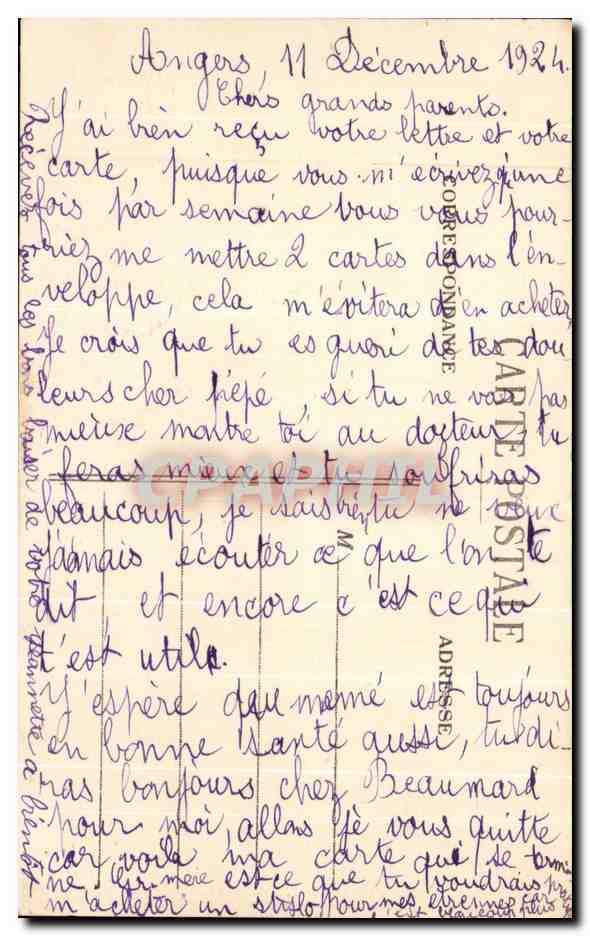 Angers, 11 Décembre 1924.
Chers grands parents.
J'ai bien reçu votre lettre et votre
carte, puisque vous m'écrivez qu'une
fois par semaine vous vous pour-
riez me mettre 2 cartes dans l'en-
veloppe, cela m'évitera d'en acheter,
Je crois que tu es gueri de tes dou
leurs cher pépé, si tu ne vas pas
mieux montre toi au docteur, tu
feras mieux et tu soufriras
beaucoup, je sais tu ne veux
jamais écouter ce que l'on te
dit, et encore c'est ce qui
t'est utile.
J'espère que memé est toujours
en bonne santé aussi, tu di-
ras bonjours chez Beaumard
pour moi, allons je vous quitte
car voila ma carte qui se termi
ne mère est-ce que tu voudrais
m'acheter un stylo pour mes etrennes car
c'est beaucoup plus
Recevez tous les bons baiser de votre Jeannette a bientôt
CARTE POSTALE
CORRESPONDANCE
ADRESSE
M
CPAPHIL